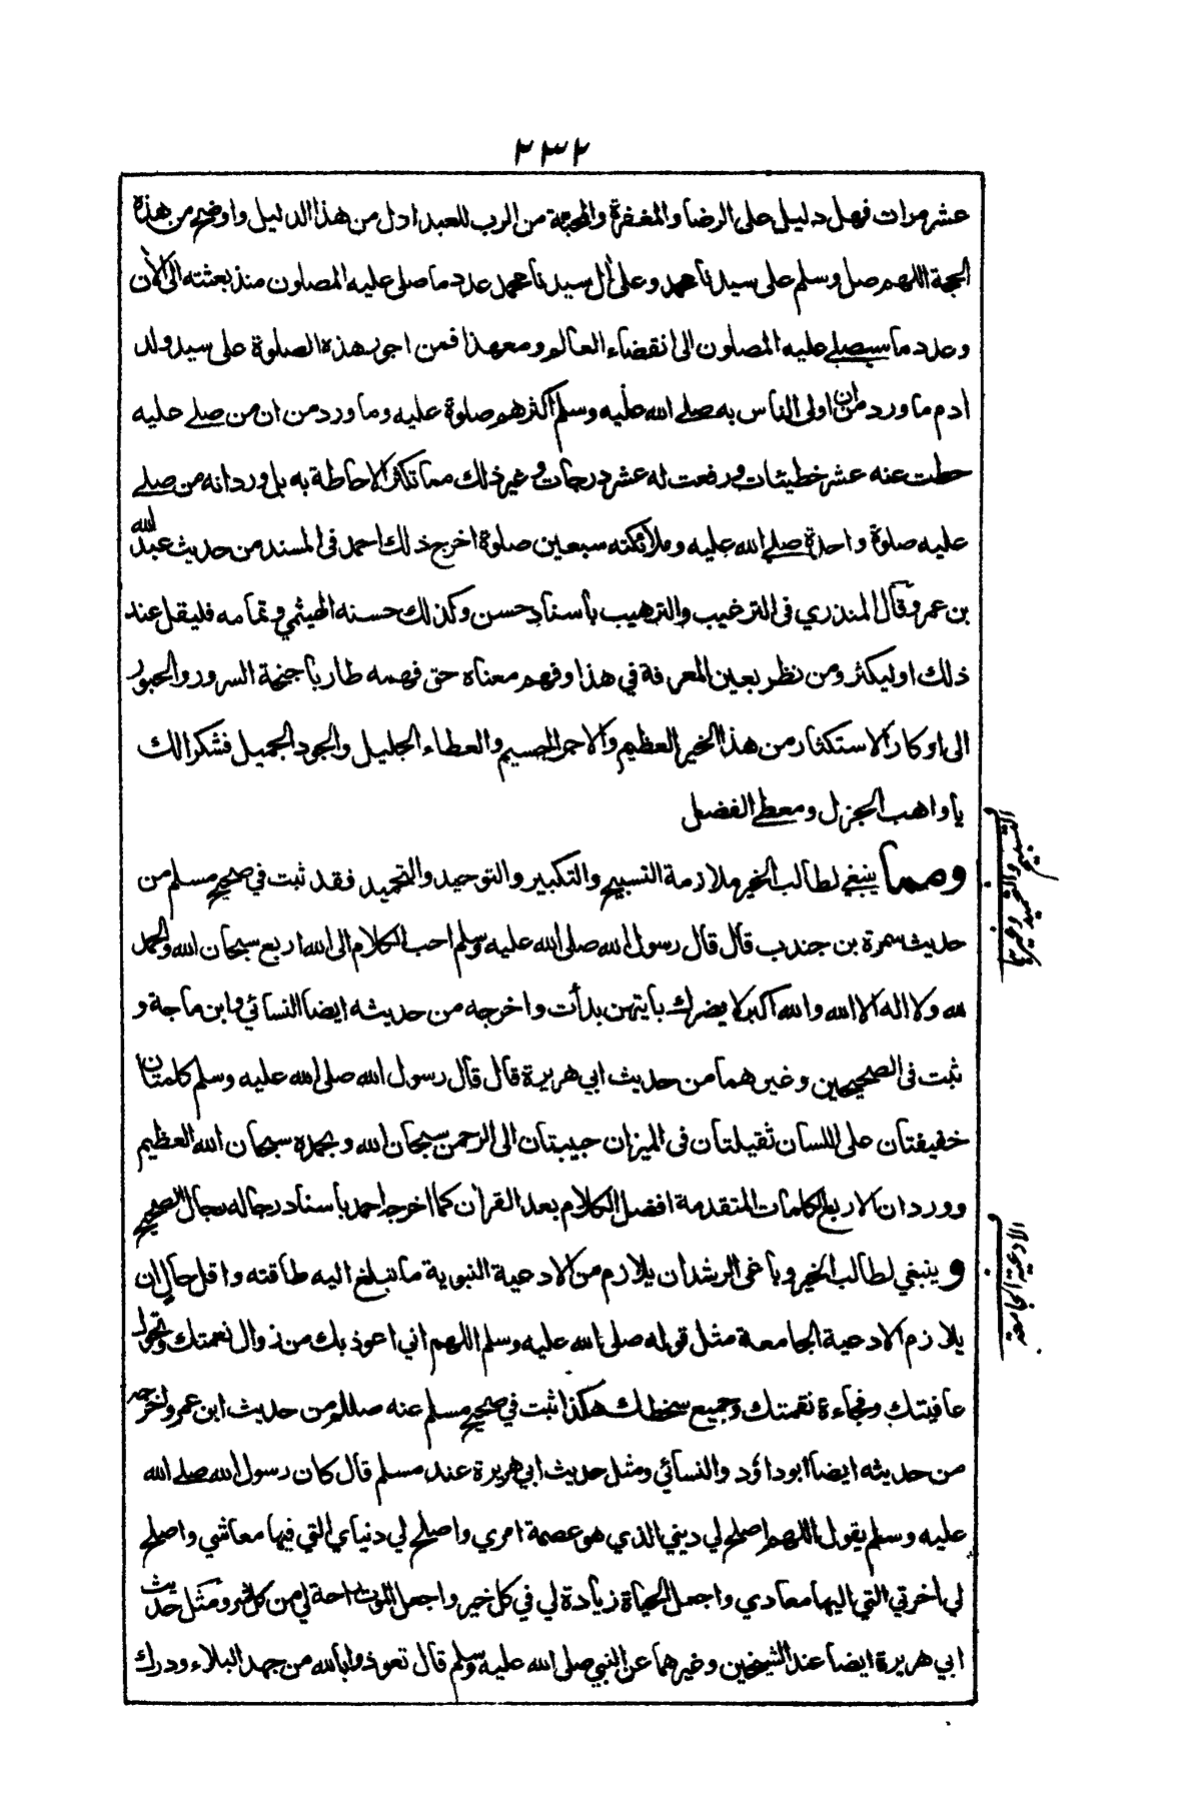 ٢٣٢
عشر مرات فهل دليل على الرضا والمغفرة والمحبة من الرب للعبد ادل من هذا الدليل واوضح من هذه
الحجة اللهم صل وسلم على سيدنا محمد وعلى أل سيدنا محمد عدد ما صلى عليه المصلون منذ بعثته الى الأن
وعدد ما سيصلي عليه المصلون الى انقضاء العالم ومع هذا فمن اجور هذه الصلوة على سيد ولد
ادم ما ورد من ان اولى الناس به صلى الله عليه وسلم اكثرهم صلوة عليه وما ورد من ان من صلى عليه
حطت عنه عشر خطيئات ورفعت له عشر درجات وغير ذلك مما تكثر الاحاطة به بل ورد انه من صلى
عليه صلوة واحدة صلى الله عليه وملائكته سبعين صلوة اخرج ذلك احمد فى المسند من حديث عبد الله
بن عمرو قال المنذري فى الترغيب والترهيب بأسناد حسن وكذلك حسنه الهيثمي وتمامه فليقل عند
ذلك او ليكثر ومن نظر بعين المعرفة في هذا وفهم معناه حق فهمه طار بأجنحة السرور والحبور
الى اوكار الاستكثار من هذا الخير العظيم والاجر الجسيم والعطاء الجليل والجود الجميل فشكرا لك
يا واهب الجزل ومعطي الفضل
ومما ينبغي لطالب الخير ملازمة التسبيح والتكبير والتوحيد والتحميد فقد ثبت في صحيح مسلم من
حديث سمرة بن جندب قال قال رسول الله صلى الله عليه وسلم احب الكلام الى الله اربع سبحان الله والحمد
لله ولا اله الا الله والله اكبر لا يضرك بأيتهن بدأت واخرجه من حديثه ايضا النسائي وابن ماجة و
ثبت فى الصحيحين وغيرهما من حديث ابي هريرة قال قال رسول الله صلى الله عليه وسلم كلمتان
خفيفتان على اللسان ثقيلتان فى الميزان حبيبتان الى الرحمن سبحان الله وبحمده سبحان الله العظيم
وورد ان الاربع الكلمات المتقدمة افضل الكلام بعد القرأن كما اخرجه احمد بأسناد رجاله رجال الصحيح
و ينبغي لطالب الخير وباغى الرشد ان يلازم من الادعية النبوية ما تبلغ اليه طاقته واقل حال ان
يلازم الادعية الجامعة مثل قوله صلى الله عليه وسلم اللهم اني اعوذ بك من زوال نعمتك وتحول
عافيتك وفجاءة نقمتك وجميع سخطك هكذا ثبت في صحيح مسلم عنه صللم من حديث ابن عمر واخرجه
من حديثه ايضا ابو داؤد والنسائي ومثل حديث ابي هريرة عند مسلم قال كان رسول الله صلى الله
عليه وسلم يقول اللهم اصلح لي ديني الذي هو عصمة امري واصلح لي دنياي التي فيها معاشي واصلح
لي أخرتي التي اليها معادي واجعل الحياة زيادة لي في كل خير واجعل الموت راحة لي من كل شر ومثل حديث
ابي هريرة ايضا عند الشيخين وغيرهما عن النبي صلى الله عليه وسلم قال تعوذوا بالله من جهد البلاء ودرك
التسبيح والتحميد وغيرهما
الادعية الجامعة